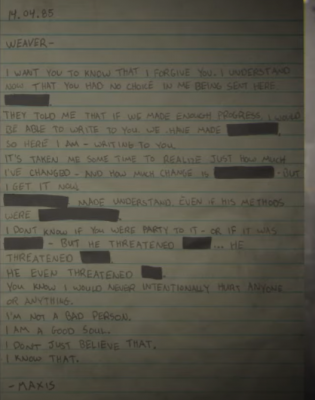 M.04.85
WEAVER-
I WANT YOU TO KNOW THAT I FORGIVE YOU. I UNDERSTAND
NOW THAT YOU HAD NO CHOICE IN ME BEING SENT HERE
THEY TOLD ME THAT IF WE MADE ENOUGH PROGRESS, I WOULD
BE ABLE TO WRITE TO YOU. WE HAVE MADE
SO HERE I AM - WRITING TO YOU.
IT'S TAKEN ME SOME TIME TO REALISE JUST HOW MUCH
I'VE CHANGED - AND HOW MUCH CHANGE IS - BUT
I GET IT NOW
MADE UNDERSTAND. EVEN IF HIS METHODS
WERE
I DON'T KNOW IF YOU WERE PARTY TO IT - OR IF IT WAS
- BUT HE THREATENED HE
THREATENED
HE EVEN THREATENED
YOU KNOW I WOULD NEVER INTENTIONALLY HURT ANYONE
OR ANYTHING.
I'M NOT A BAD PERSON.
I AM A GOOD SOUL.
I DON'T JUST BELIEVE THAT.
I KNOW THAT.
-MAXIS